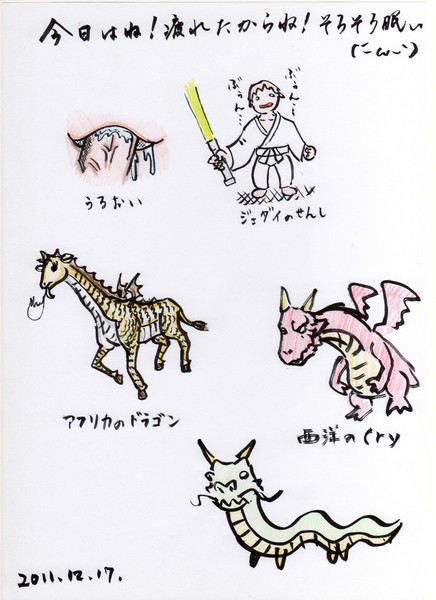 今日はね！疲れたからね！そろそろ眠い
(´-ω-`)
ぶぅん…
ぶぅん…
うるおい
ジェダイのせんし
アフリカのドラゴン
西洋のCry
2011.12.17.